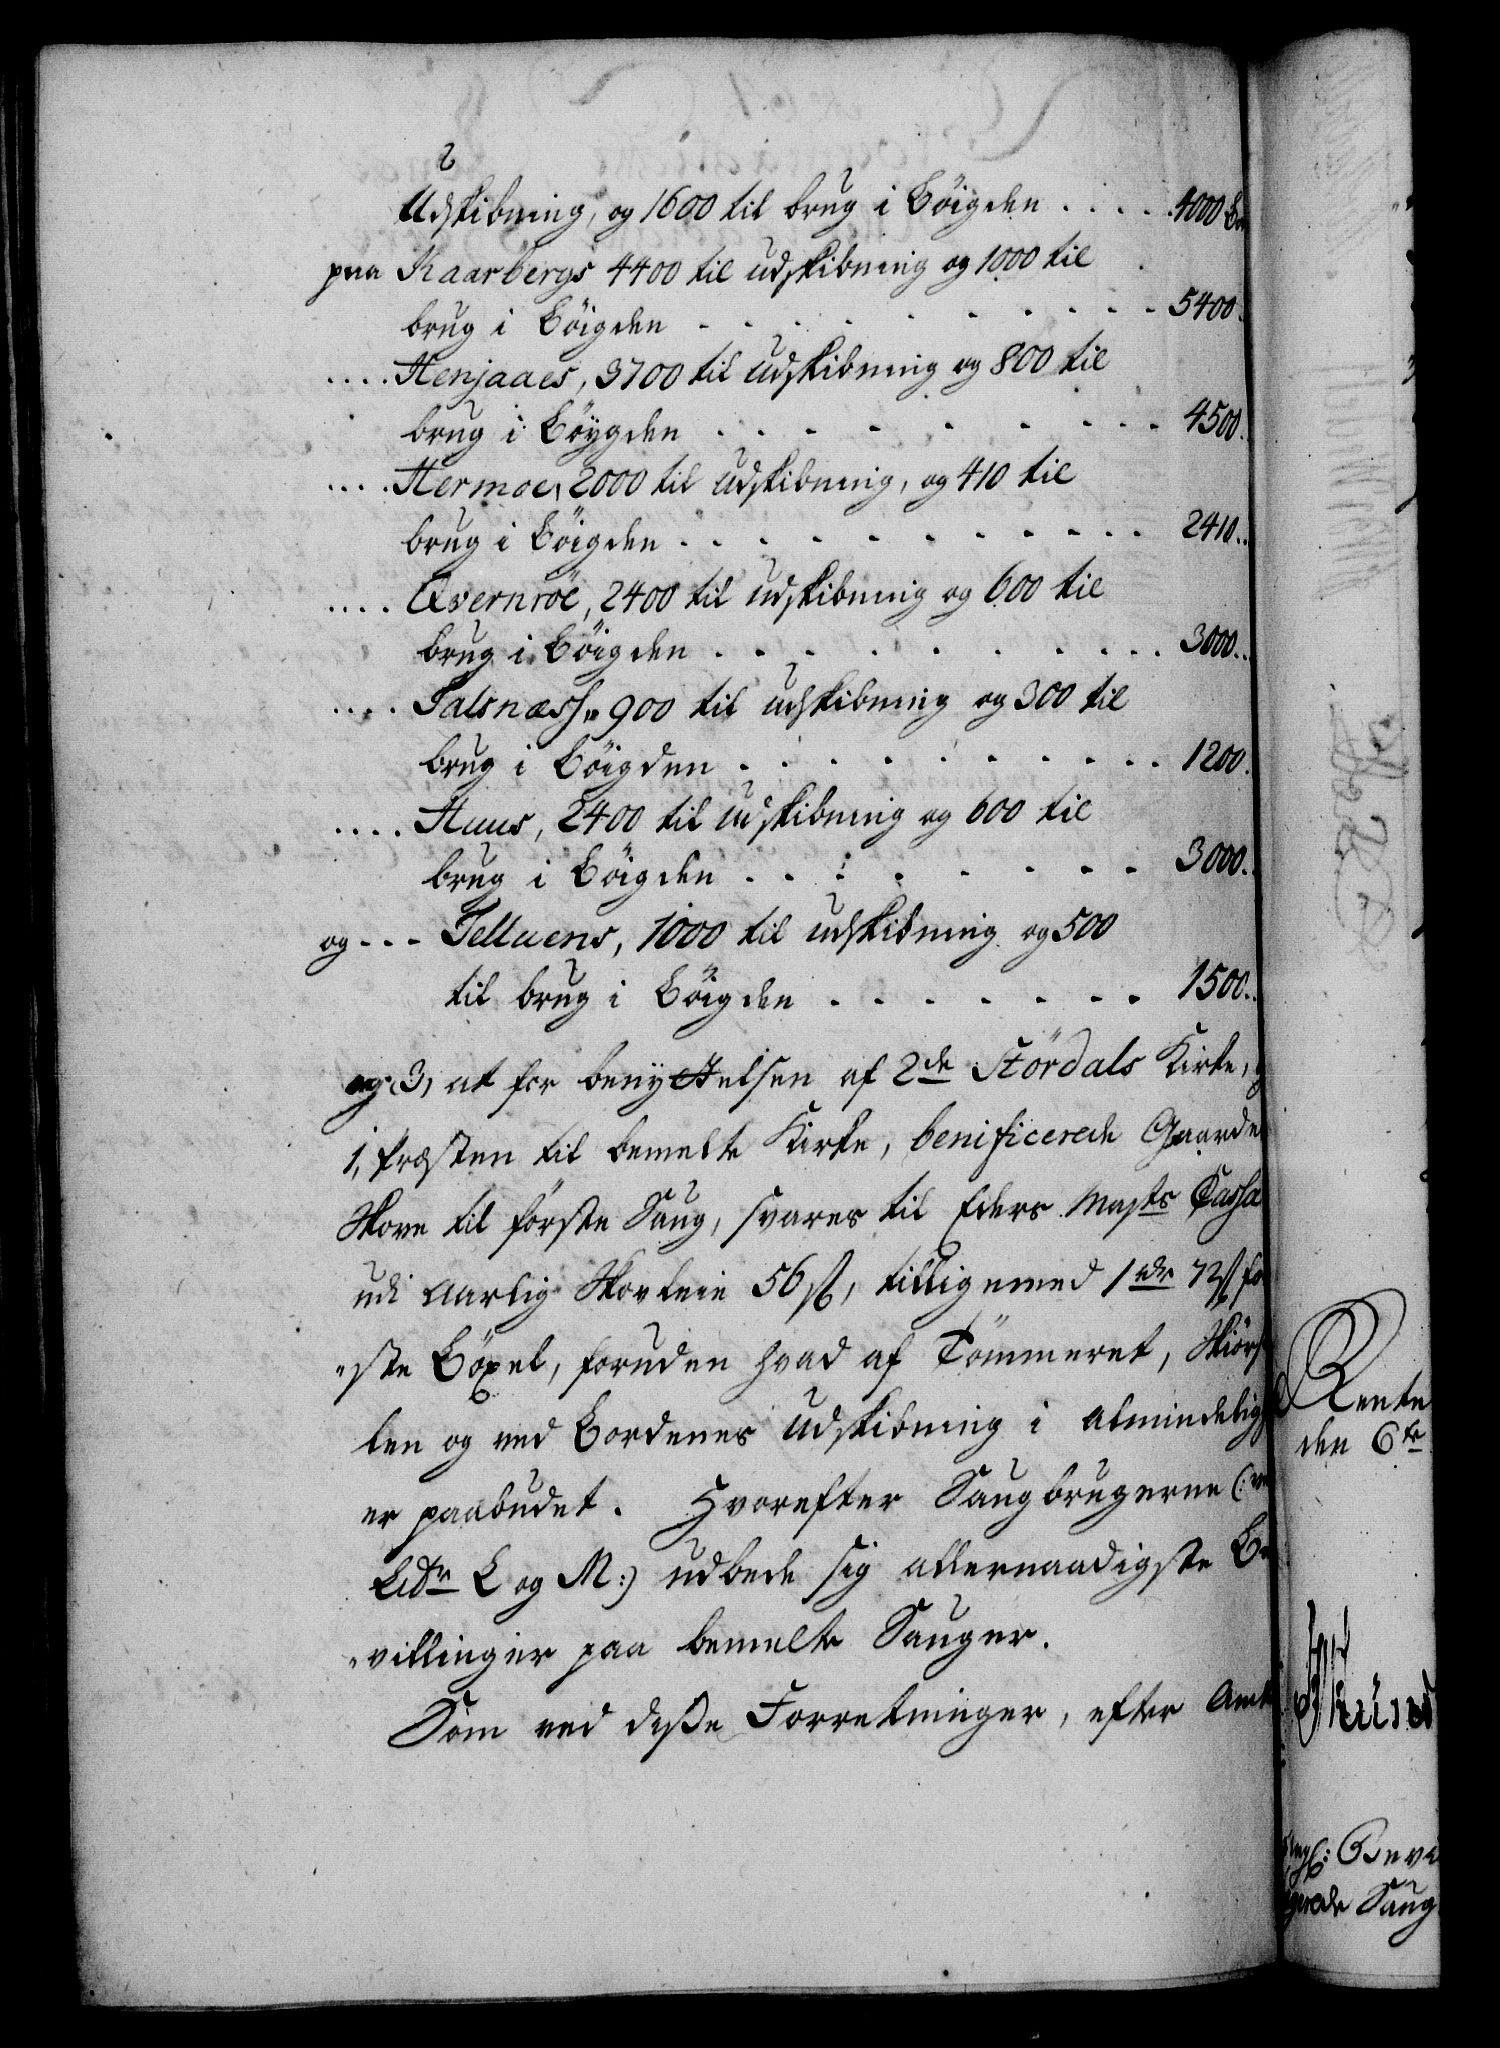 Udskibning, og 1600 til brug i Böigden . . . . . 4000
paa Kaarbergs 4400 til udskibning og 1000 til
brug i Böigden . . . . . . . . . 5400.
.... Henjaaes, 3700 til udskibning og 800 til
brug i Böygden . . . . . . . . . 4500.
.... Hermoe, 2000 til udskibning, og 410 til
brug i Böigden . . . . . . . . . . 2410..
.... Qvernröe, 2400 til udskibning og 600 til
brug i Böigden . . . . . . . . . 3000..
.... Salsnæss, 900 til udskibning og 300 til
brug i Böigden . . . . . . . . . 1200.
.... Huus, 2400 til udskibning og 600 til
brug i Böigden . . . . . . . . 3000..
og - - - Selluens, 1000 til udskibning og 500
til brug i Böigden . . . . . . . 1500..
og 3, at for benyttelsen af 2de Stördals Kirke,
1, Præsten til bemelte Kirke, benificerede Gaarde
Skove til förste Saug, svares til Eders Majts Cassa
udi aarlig Skovleie 56 s, tilligemed 1 rdr 72 s
"ste Böxel, foruden hvad af Tömmeret,
len og ved Bordenes udskibning i almindelig
er paabudet. Hvorefter Saugbrugerne (:
Litr L og M:) udbede sig allernaadigste Be
"villinger paa bemelte Sauger.
Som ved disse Forretninger, efter Amt
Rente
den 6te
Bevi
Saug